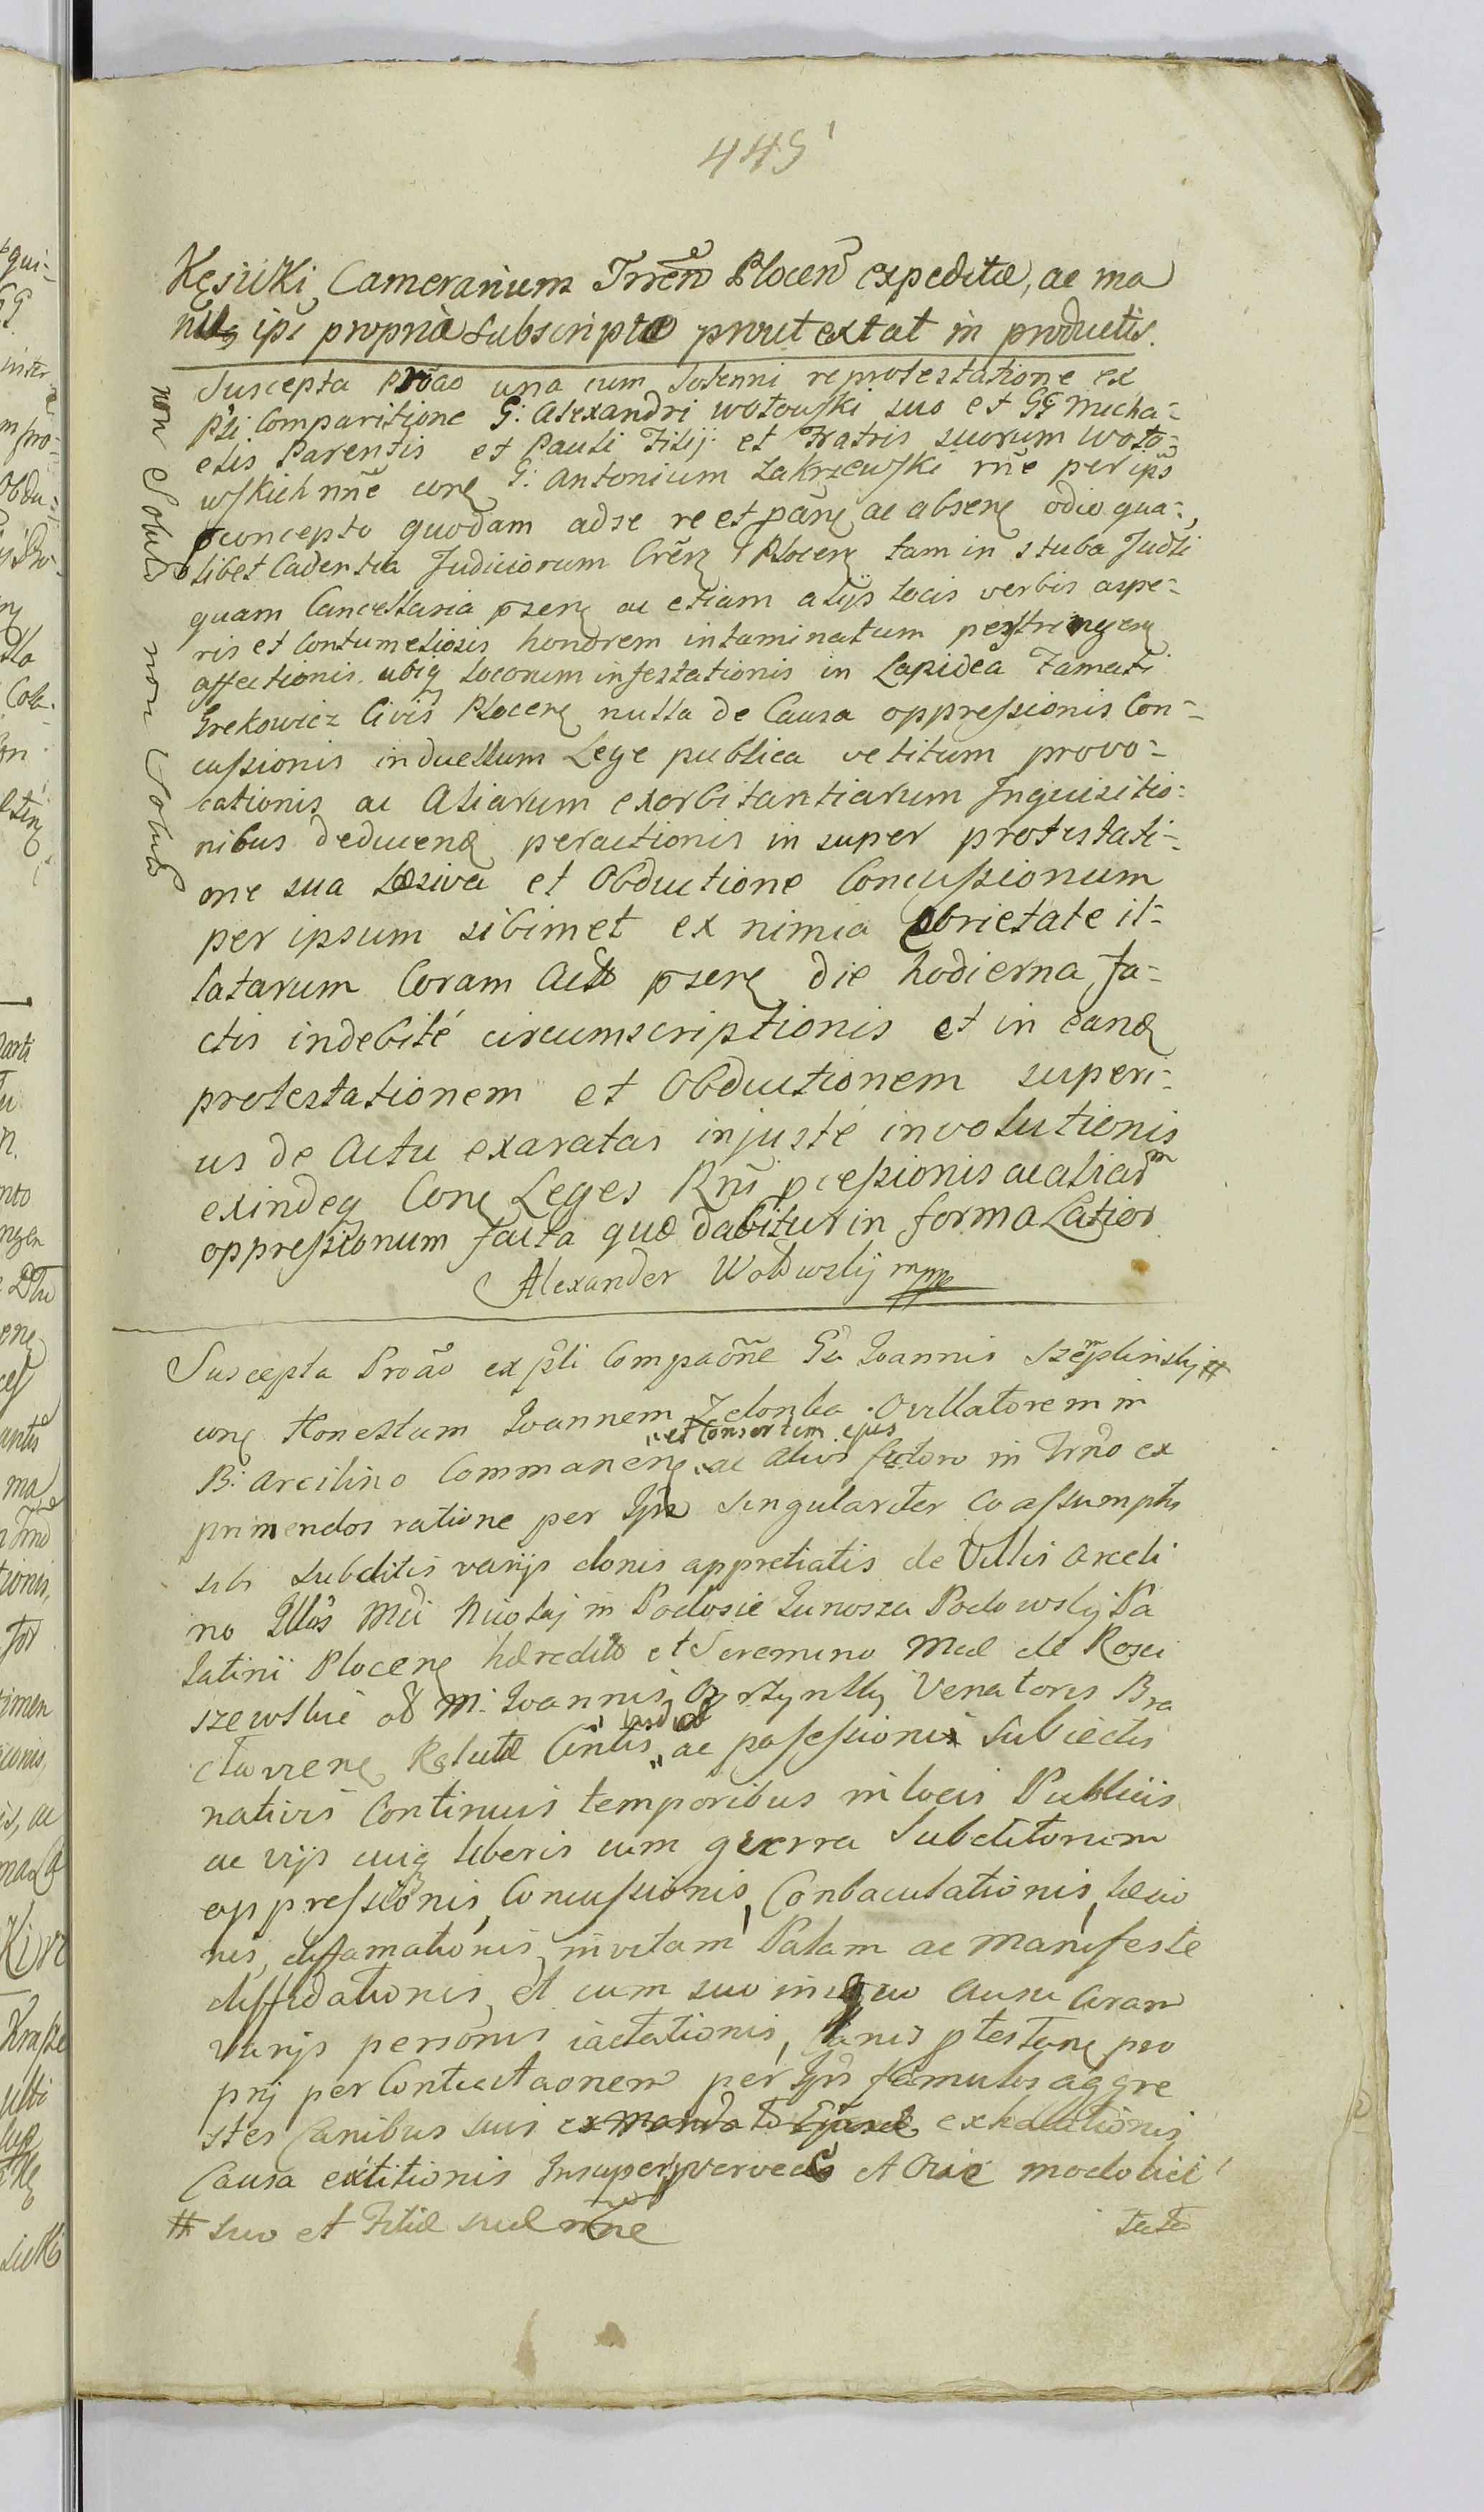 445
Kęsicki Camerarium Trren Plocen expeditæ, ac ma
nus ipi propria subscriptæ prout extat in productis.
Suscepta Proao una cum Solenni reprotestatione ex
Psti Comparitione G: Alexandri Wołowski suo et GG Micha=
elis Parentis et Pauli Filij et Fratris suorum Woło=
wskich nne con G: Antonium Zakrzewski rne per ips
concepto quodam adse re et parn ac absen odio qua=
libet Cadentia Judiciorum Cren Plocen tam in stuba Judli
quam Cancellaria psen ac etiam alijs locis verbis aspe=
ris et Contumeliosis honorem intaminatum perstringen
affectionis ubiq locorum infestationis in Lapidea Famati
Grekowicz Civis Plocen nulla de Causa oppressionis Con=
cussionis in duellum Lege publica vetitum provo=
cationis ac Aliarum exorbitantiarum Inquisitio=
nibus deducend peractionis in super protestati=
one sua læsiva et Obductione Concussionum
per ipsum sibimet ex nimia ebrietate il=
latarum Coram Actis psen die hodierna fa=
ctis indebité circumscriptionis et in eand
protestationem et Obductionem superi=
us de Actu exaratas injusté involutionis
exindeq Con Leges Rni pcessionis ac aliar
oppressionum facta quæ dabitur in forma Latior
Alexander Wołowskij mpp
non Solut non Solut
Suscepta Proao ex psti Compaone Gsi Ioannis Szemplinskij #
con Honestum Ioannem Zelonka Ovillatorem in
B: Arcilino Commanen "et Consortem ejus" ac alios facto in Trno ex
primendos ratione per Ips Singulariter Coassumptis
sibi subditis varijs donis appretiatis de Villis Arceli
no Illis Mci Nicolaj in Podosie Junosza Podowskij Pa
latini Plocen hæredito et Seremino Mcæ de Rosci
szewskie M: Ioannis Venatoris Bra
claviens Relictæ ac possessionis Subiectis
nativis Continuis temporibus in locis Publicis
ac vijs cuiq liberis cum guerra Subditorum
oppressionis, Concussionis, Conbaculationis, læsio
nis, diffamationis, in vitam Palam ac Manifeste
diffidationis, et cum suo iniquo Ausu Coram
varijs personis iactationis, Canis ptestan pro
prij per Contrectaonem per Ips famulos aggre
stes Canibus suis ex mandato exhalationis
Causa extitionis Insuper, verveces et Ovie modo lici
# suo et Filiæ suæ nne
tuto